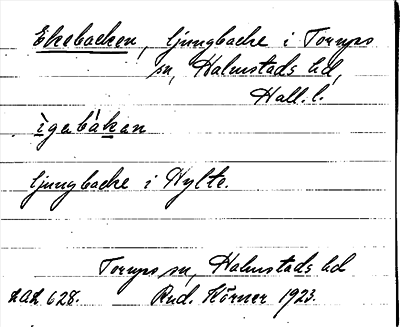 Ekebacken, ljungbacke i Torups
sn, Halmstads hd,
Hall. l.
ìgebákan
ljungbacke i Hylte.
Torups sn, Halmstads hd
LAL 628. Rud. Hörner 1923.